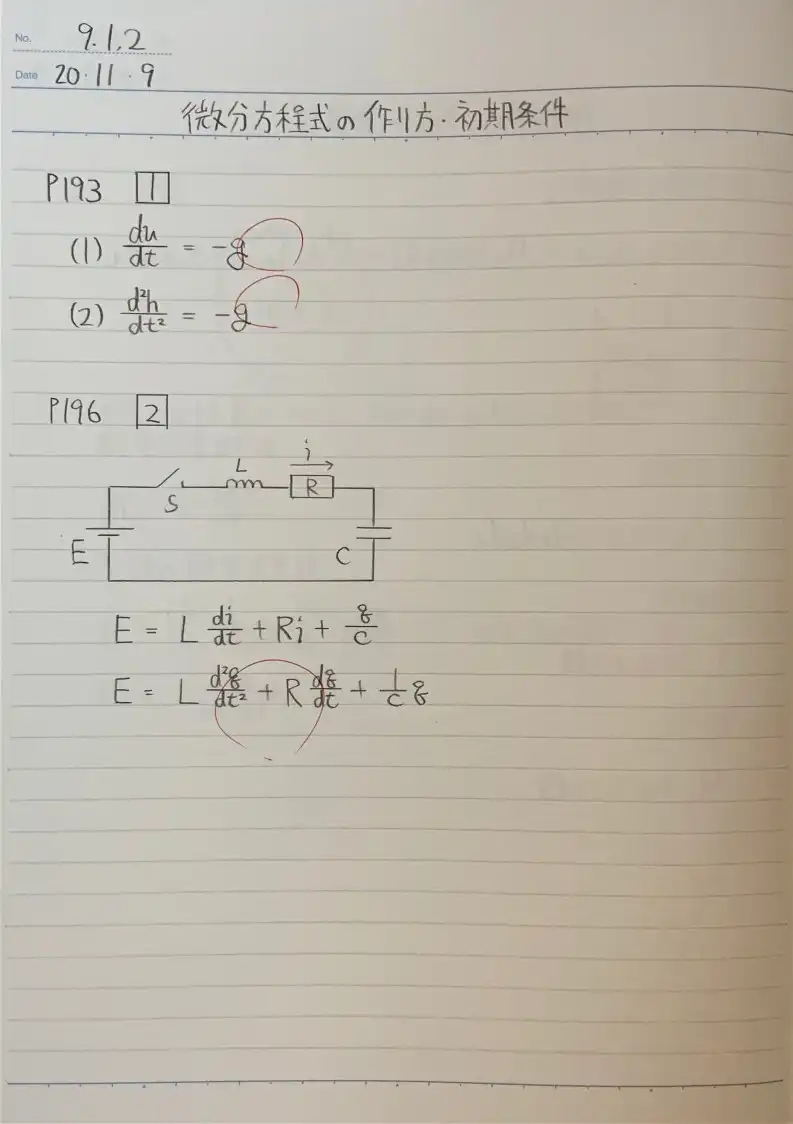 No. 9.1,2
Date 20・11・9
微分方程式の作り方・初期条件
P193 1
(1) du/dt = -g
(2) d²h/dt² = -g
P196 2
S L i R
E C
E = L di/dt + Ri + q/c
E = L d²q/dt² + R dq/dt + 1/c q